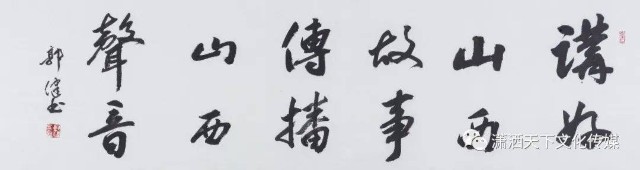 講好
山西
故事
傳播
山西
聲音
郭健书
潇洒天下文化传媒